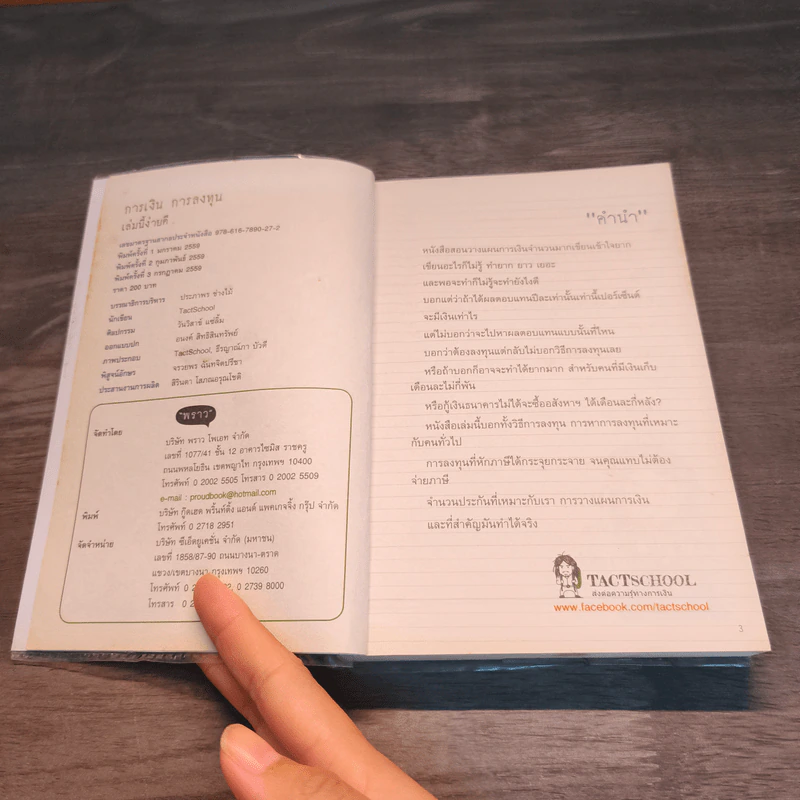 การเงิน การลงทุน
เล่มนี้ง่ายดี
เลขมาตรฐานสากลประจำหนังสือ 978-616-7890-27-2
พิมพ์ครั้งที่ 1 มกราคม 2559
พิมพ์ครั้งที่ 2 กุมภาพันธ์ 2559
พิมพ์ครั้งที่ 3 กรกฎาคม 2559
ราคา 200 บาท
บรรณาธิการบริหาร ประภาพร ช่างไม้
นักเขียน TactSchool
ศิลปกรรม วันวิสาข์ แซ่ลิ้ม
ออกแบบปก อนงค์ สิทธิสินทรัพย์
ภาพประกอบ TactSchool, ธีรญาณ์ภา บัวดี
พิสูจน์อักษร จรวยพร ฉันทจิตปรีชา
ประสานงานการผลิต สิรินดา โสภณอรุณโชติ
"พราว"
จัดทำโดย บริษัท พราว โพเอท จำกัด
เลขที่ 1077/41 ชั้น 12 อาคารไซมิส ราชครู
ถนนพหลโยธิน เขตพญาไท กรุงเทพฯ 10400
โทรศัพท์ 0 2002 5505 โทรสาร 0 2002 5509
e-mail : proudbook@hotmail.com
พิมพ์ บริษัท กู๊ดเฮด พริ้นท์ติ้ง แอนด์ แพคเกจจิ้ง กรุ๊ป จำกัด
โทรศัพท์ 0 2718 2951
จัดจำหน่าย บริษัท ซีเอ็ดยูเคชั่น จำกัด (มหาชน)
เลขที่ 1858/87-90 ถนนบางนา-ตราด
แขวง/เขตบางนา กรุงเทพฯ 10260
โทรศัพท์ 0 2739 8000
โทรสาร 0
"คำนำ"
หนังสือสอนวางแผนการเงินจำนวนมากเขียนเข้าใจยาก
เขียนอะไรก็ไม่รู้ ทำยาก ยาว เยอะ
และพอจะทำก็ไม่รู้จะทำยังไงดี
บอกแต่ว่าถ้าได้ผลตอบแทนปีละเท่านั้นเท่านี้เปอร์เซ็นต์
จะมีเงินเท่าไร
แต่ไม่บอกว่าจะไปหาผลตอบแทนแบบนั้นที่ไหน
บอกว่าต้องลงทุนแต่กลับไม่บอกวิธีการลงทุนเลย
หรือถ้าบอกก็อาจจะทำได้ยากมาก สำหรับคนที่มีเงินเก็บ
เดือนละไม่กี่พัน
หรือกู้เงินธนาคารไม่ได้จะซื้ออสังหาฯ ได้เดือนละกี่หลัง?
หนังสือเล่มนี้บอกทั้งวิธีการลงทุน การหาการลงทุนที่เหมาะ
กับคนทั่วไป
การลงทุนที่หักภาษีได้กระจุยกระจาย จนคุณแทบไม่ต้อง
จ่ายภาษี
จำนวนประกันที่เหมาะกับเรา การวางแผนการเงิน
และที่สำคัญมันทำได้จริง
TACTSCHOOL
ส่งต่อความรู้ทางการเงิน
www.facebook.com/tactschool
3